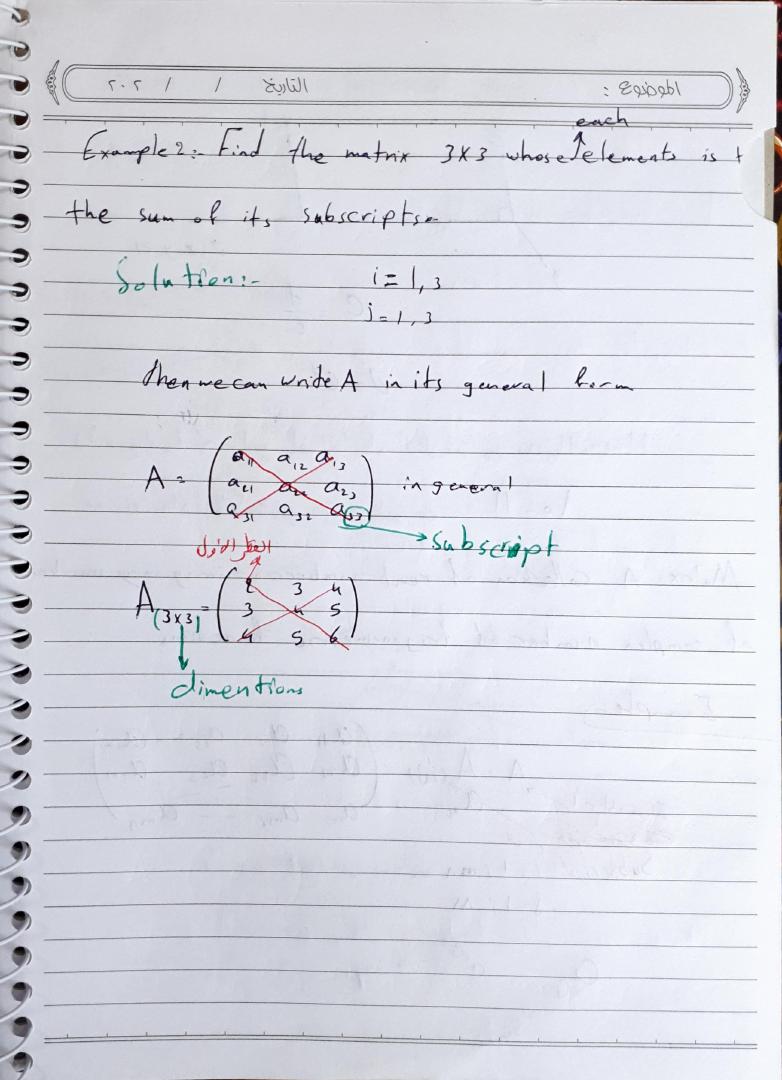 الموضوع :
التاريخ / / ٢٠٢
each
Example 2:- Find the matrix 3x3 whose elements is t
the sum of its subscripts.
Solution:- i = 1, 3
j = 1, 3
then we can write A in its general form
A = ( a11 a12 a13
a21 a22 a23 in general
a31 a32 a33 )
subscript
القطر الأول
A(3x3) = ( 2 3 4
3 4 5
4 5 6 )
dimentions